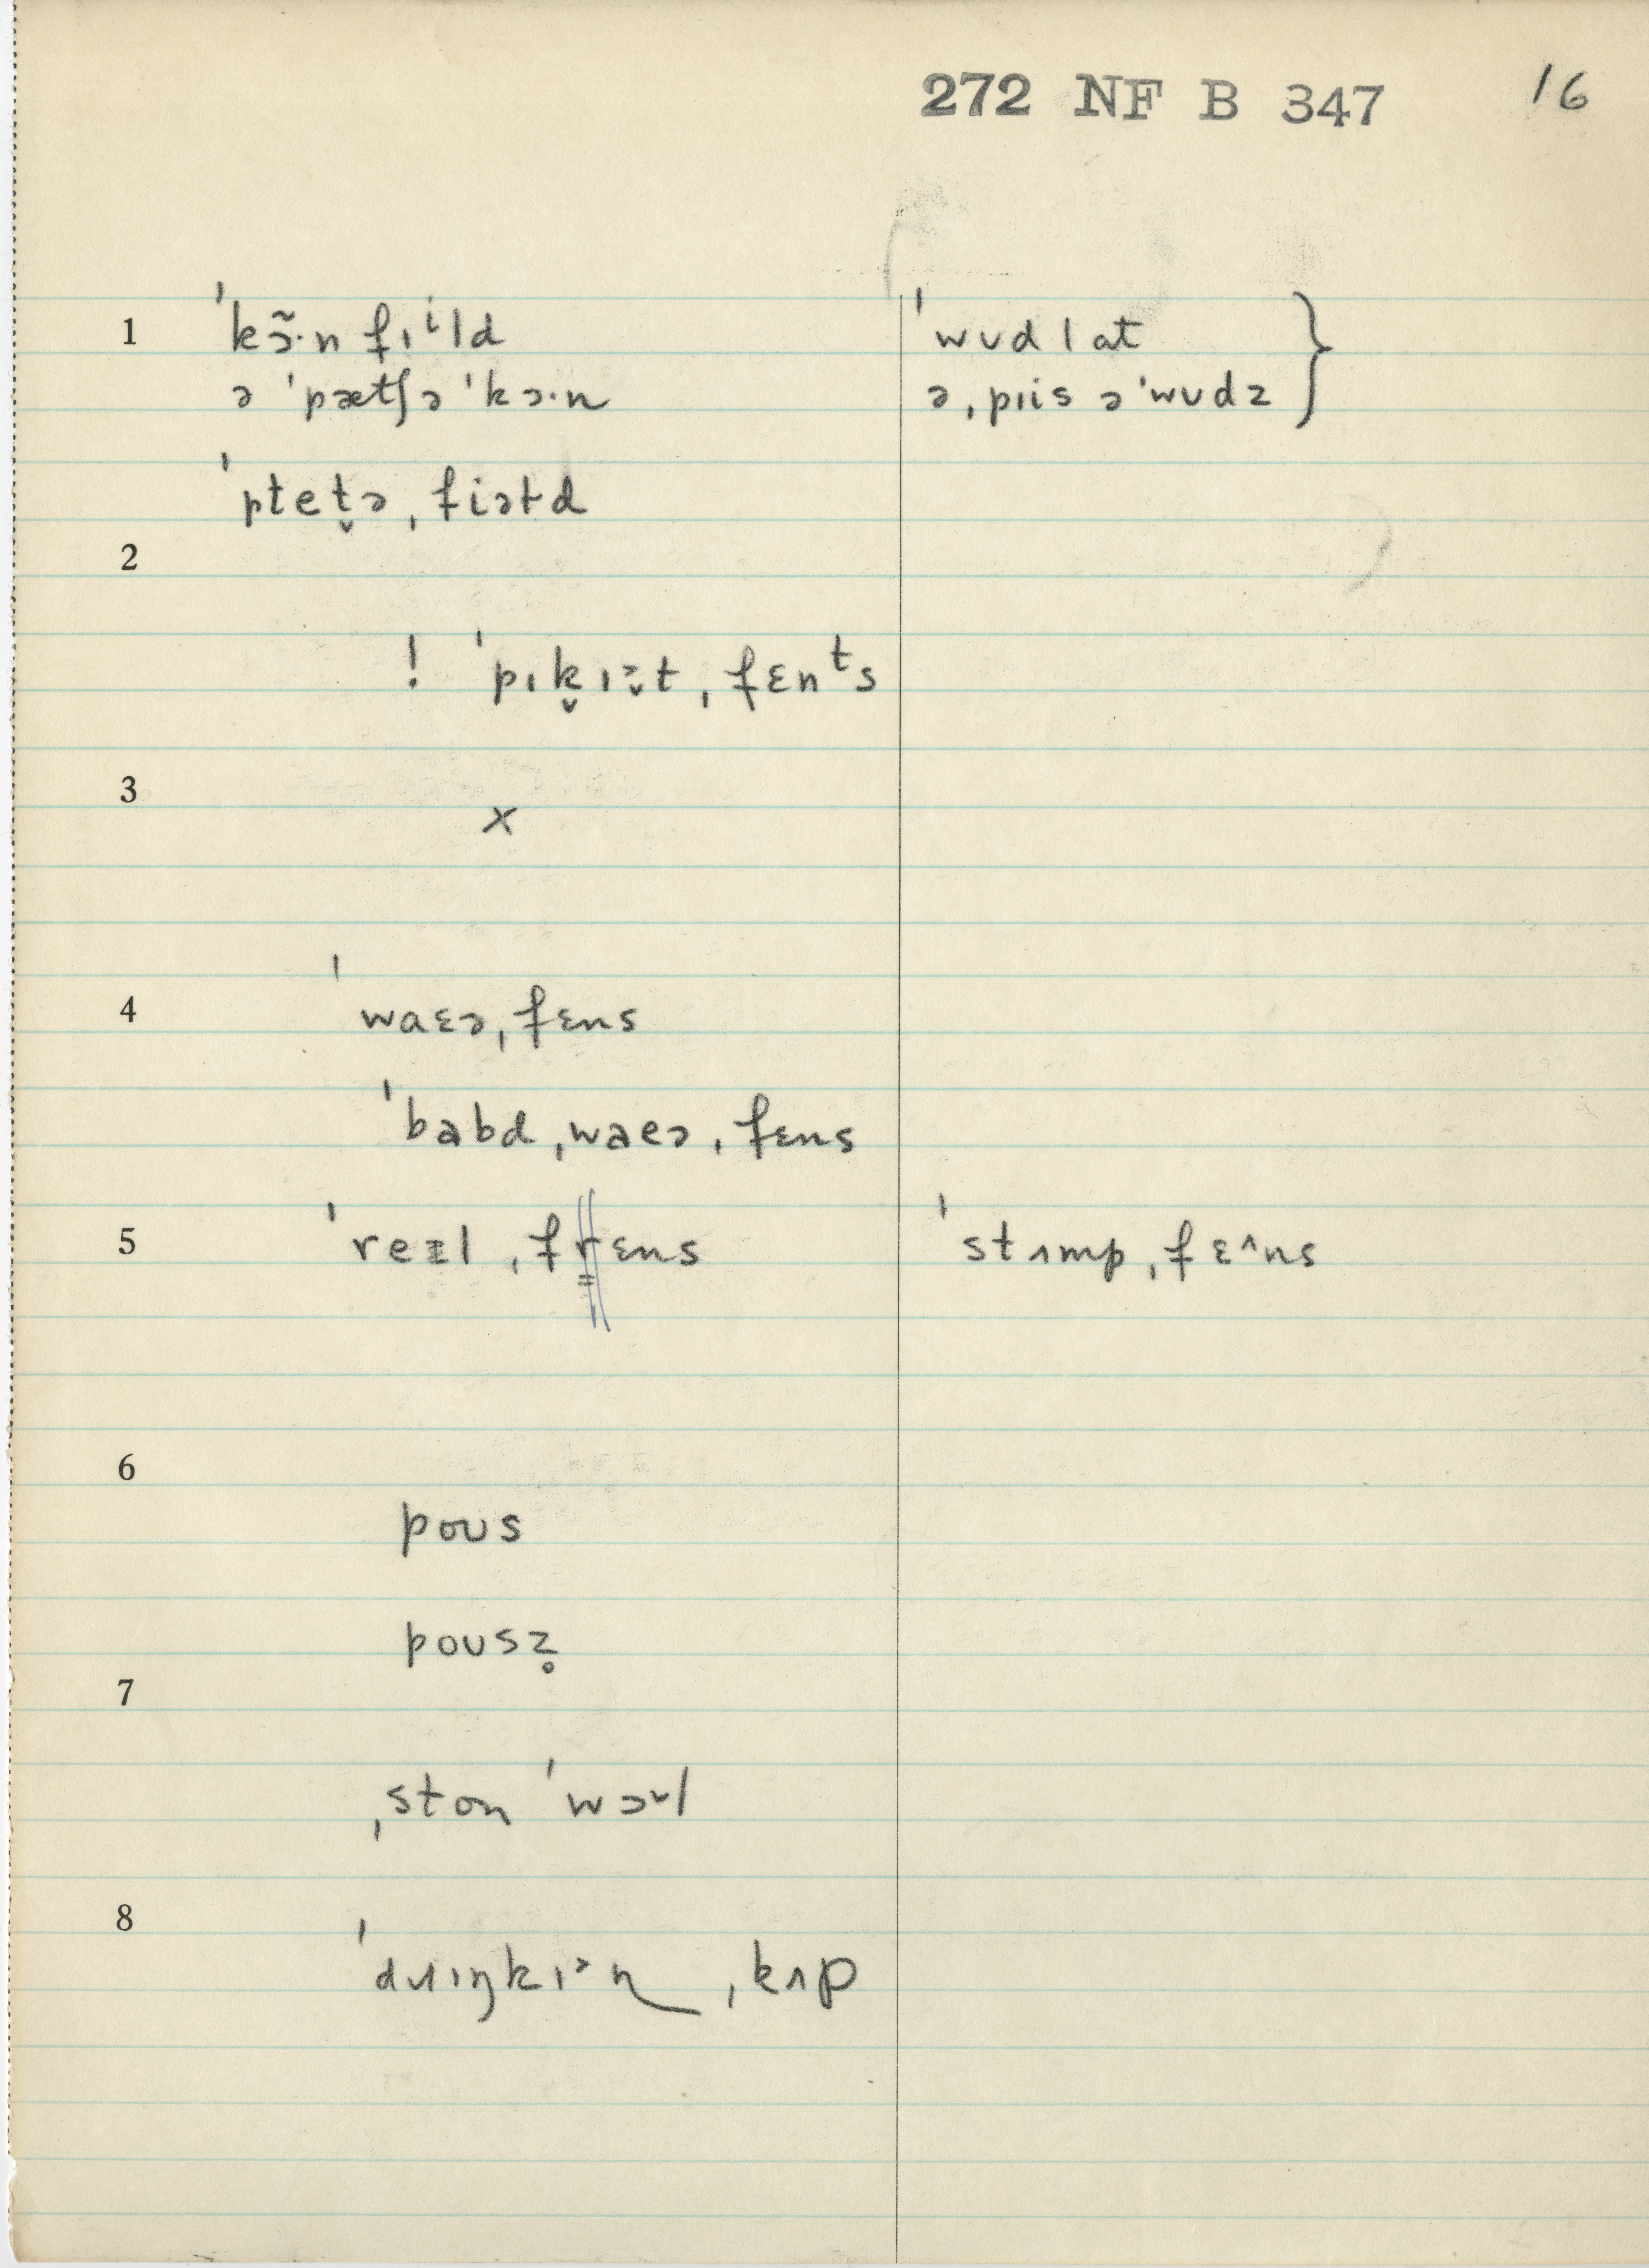 272 NF B 347 16
1 ˈkɔ̃·n fɪⁱld ˈwʊd lat }
ə ˈpætʃə ˈkɔ·n ə ˌpɪis ə ˈwʊdz
ˈptet̬ə ˌfiəɫd
2
! ˈpɪk̬ɪᵊ̬t ˌfɛnᵗs
3
x
4 ˈwaɛə ˌfɛns
ˈbabd ˌwaeə ˌfɛns
5 ˈreɪl ˌfrɛns ˈstʌmp ˌfɛ^ns
6
poʊs
poʊsz̥
7
ˌston ˈwɔ˅l
8
ˈdɹɪŋkɪ˃n ˌkʌp